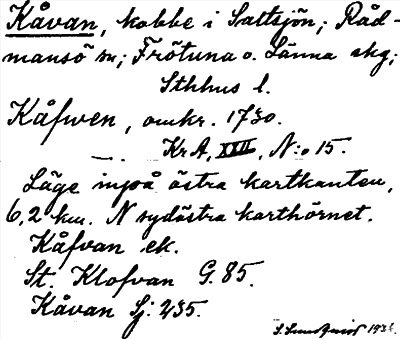 Kåvan, kobbe i Saltsjön; Råd-
mansö sn; Frötuna o. Länna skg;
Sthhus l.
Kåfwen, omkr. 1730.
—„— KrA, XXII, N:o 15.
Läge inpå östra kartkanten,
6,2 km. N sydöstra karthörnet.
Kåfvan ek.
St. Klofvan G. 85.
Kåvan Sj. 235.